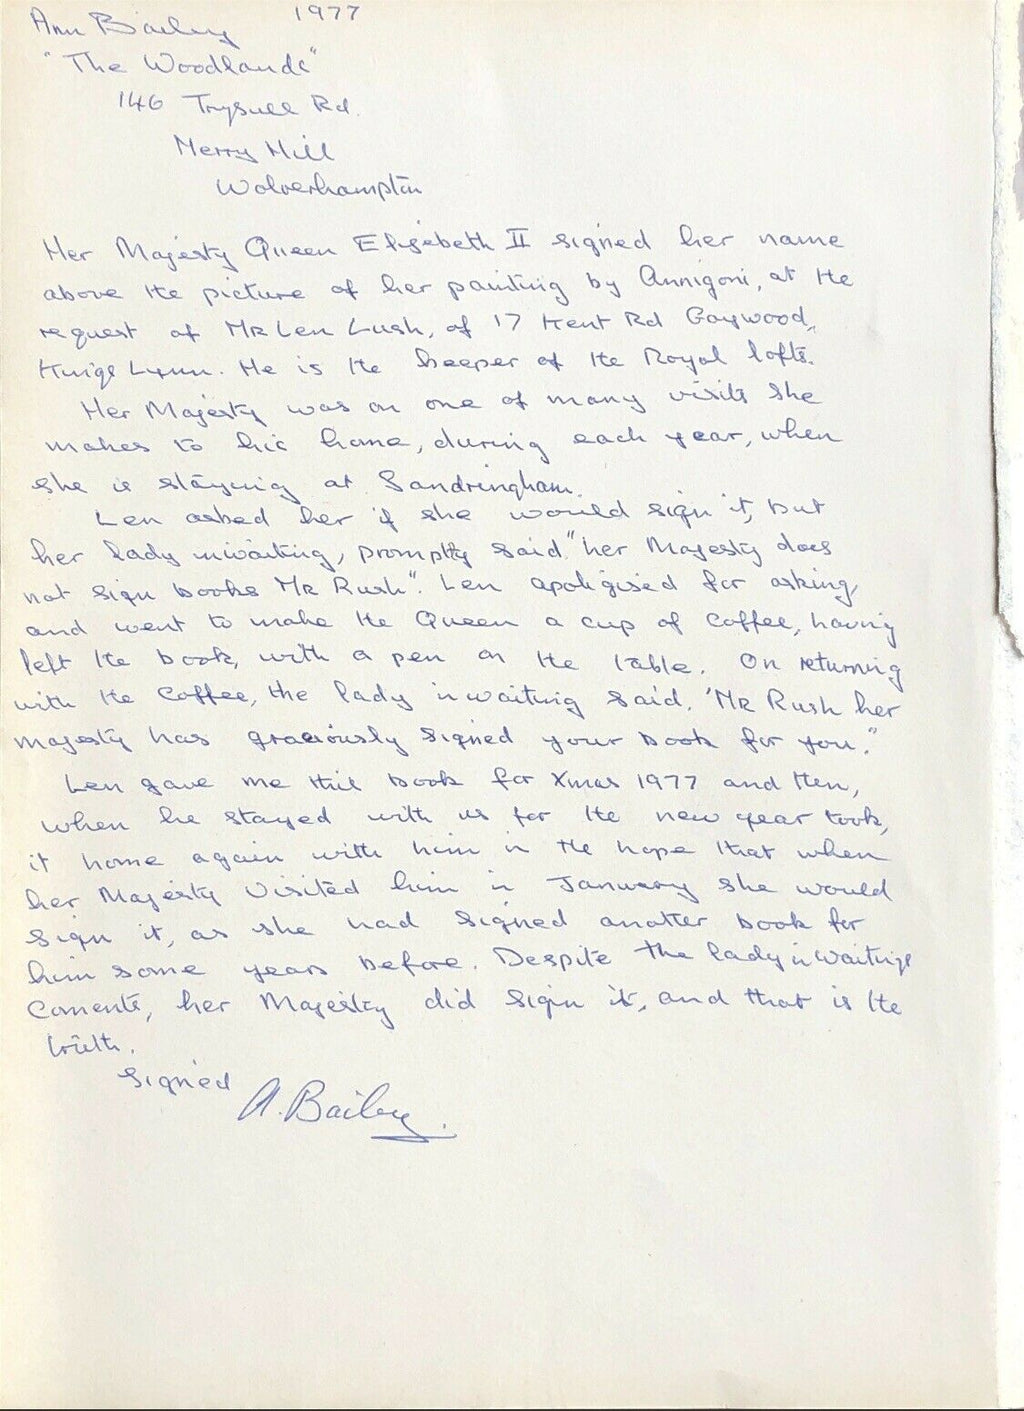 1977
Ann Bailey
"The Woodlands"
146 Trysull Rd.
Merry Hill
Wolverhampton
Her Majesty Queen Elizebeth II signed her name
above the picture of her painting by Annigoni, at the
request of Mr Len Lush, of 17 Kent Rd Gaywood,
Kings Lynn. He is the keeper of the Royal lofts.
Her Majesty was on one of many visits she
makes to his home, during each year, when
she is staying at Sandringham.
Len asked her if she would sign it, but
her lady inwaiting, promptly said "her Majesty does
not sign books Mr Rush". Len apoligised for asking
and went to make the Queen a cup of coffee, having
left the book, with a pen on the table. On returning
with the coffee, the lady in waiting said. 'Mr Rush her
majesty has graciously signed your book for you."
Len gave me this book for Xmas 1977 and then,
when he stayed with us for the new year took,
it home again with him in the hope that when
her Majesty visited him in January she would
sign it, as she had signed another book for
him some years before. Despite the lady in waitings
Coments, her Majesty did sign it, and that is the
truth.
Signed A. Bailey.